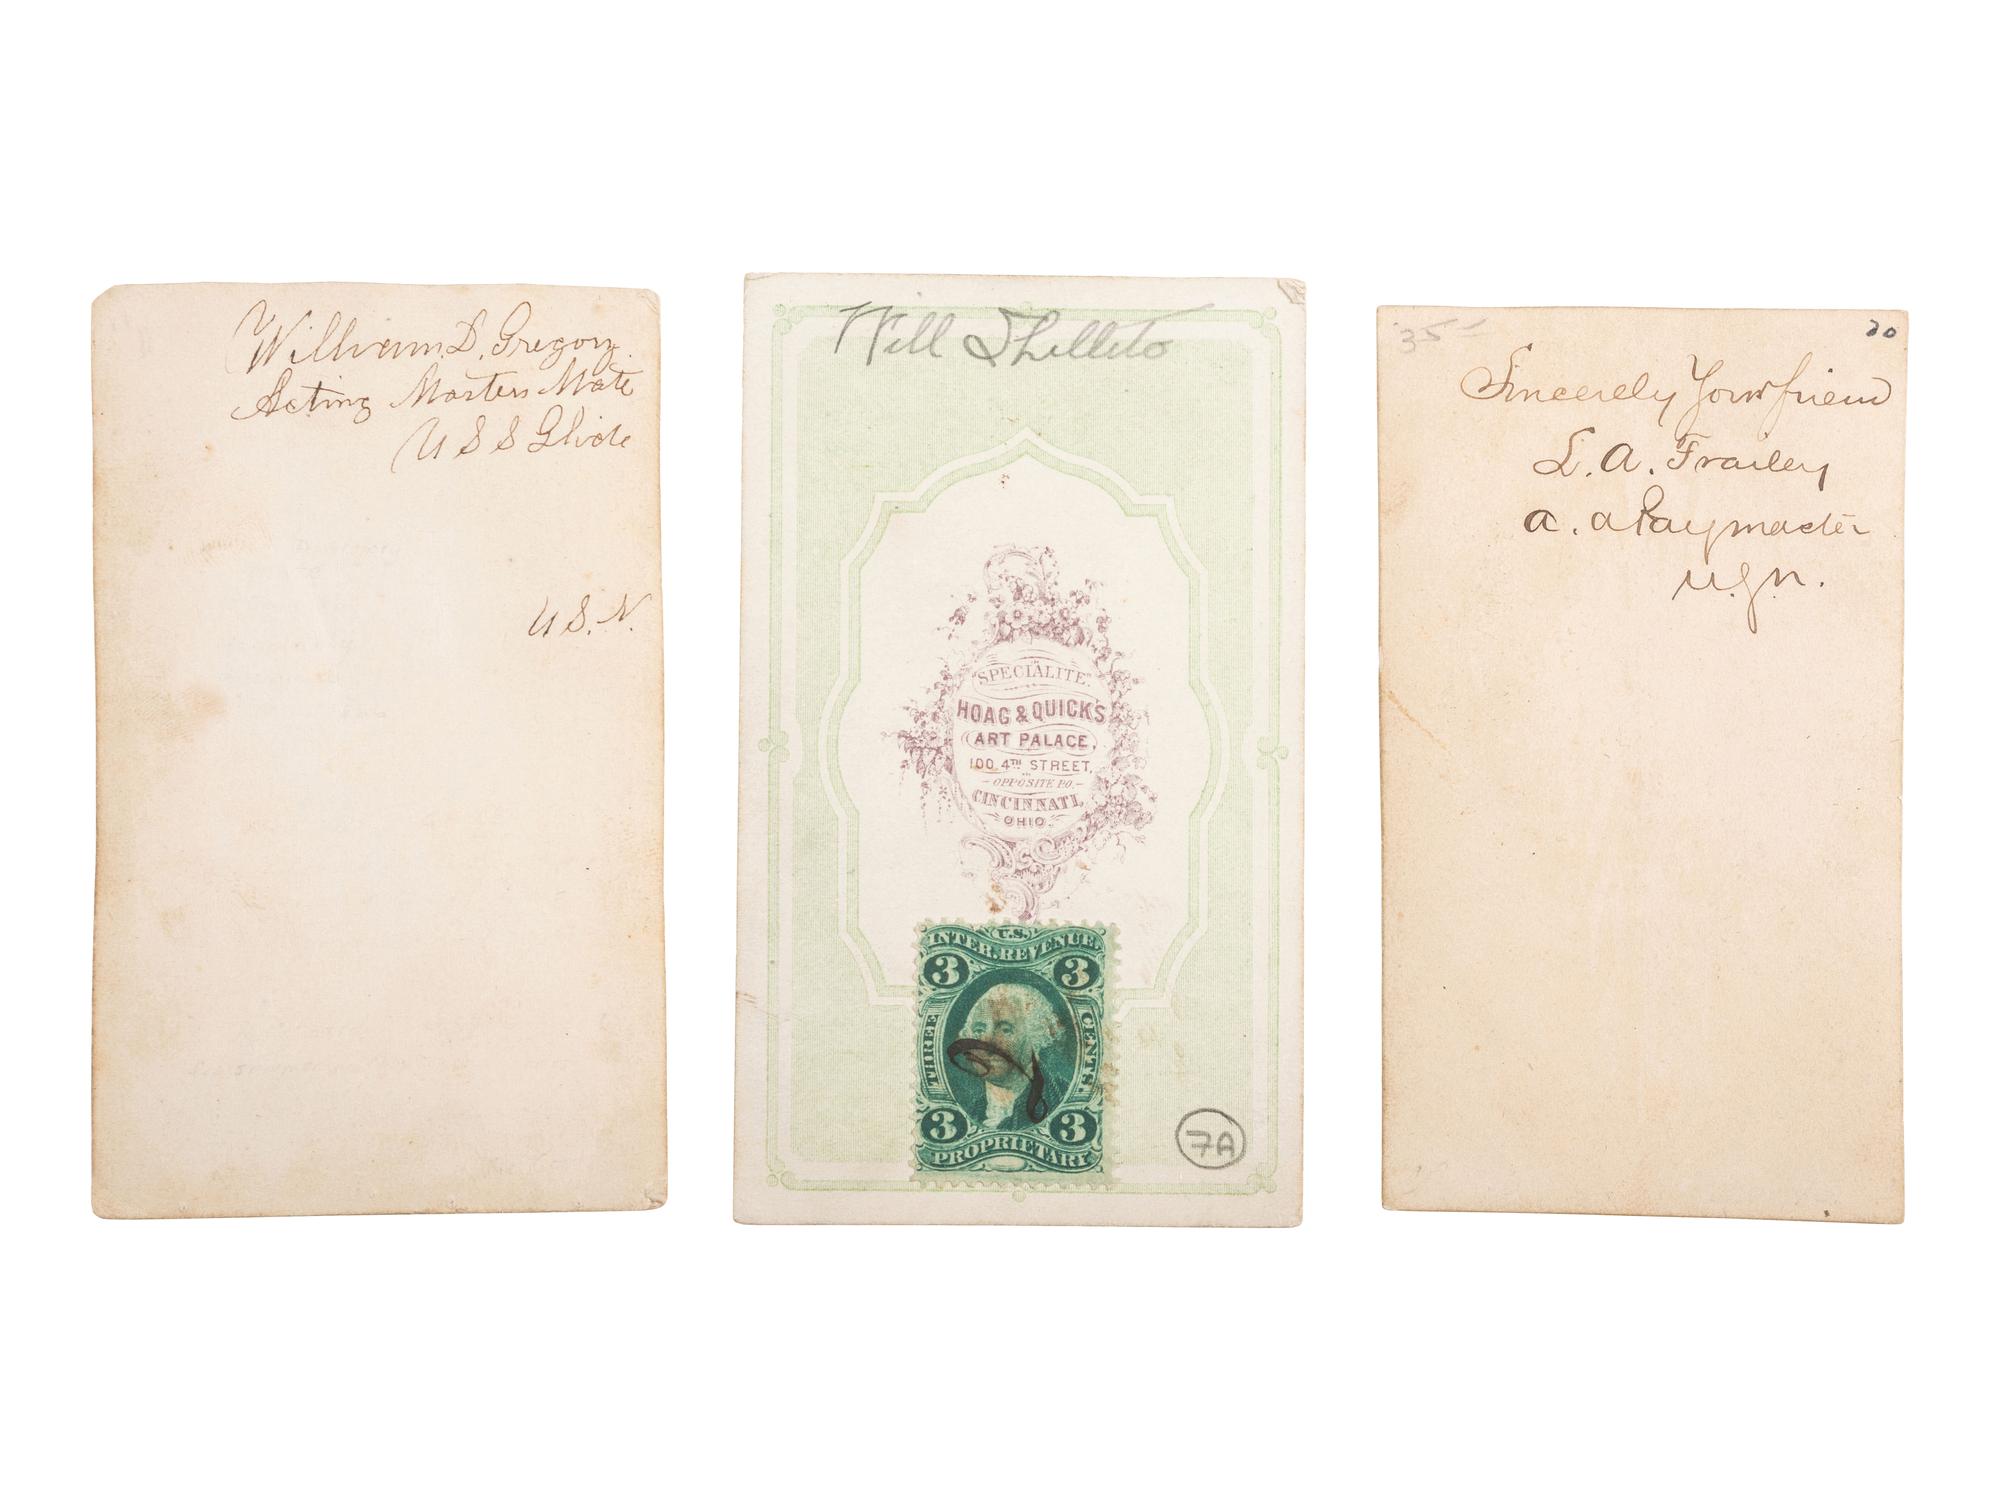 William D. Gregory.
Acting Masters Mate
U S S Glide
U S. N.
Will Shillito
"SPECIALITE."
HOAG & QUICK'S
ART PALACE,
100 4TH STREET,
OPPOSITE P.O.
CINCINNATI,
OHIO.
U.S.
INTER. REVENUE.
3 3
THREE
CENTS.
3 3
PROPRIETARY
7A
35-
20
Sincerely Your friend
L. A. Frailey
a. a Paymaster
U.S.N.